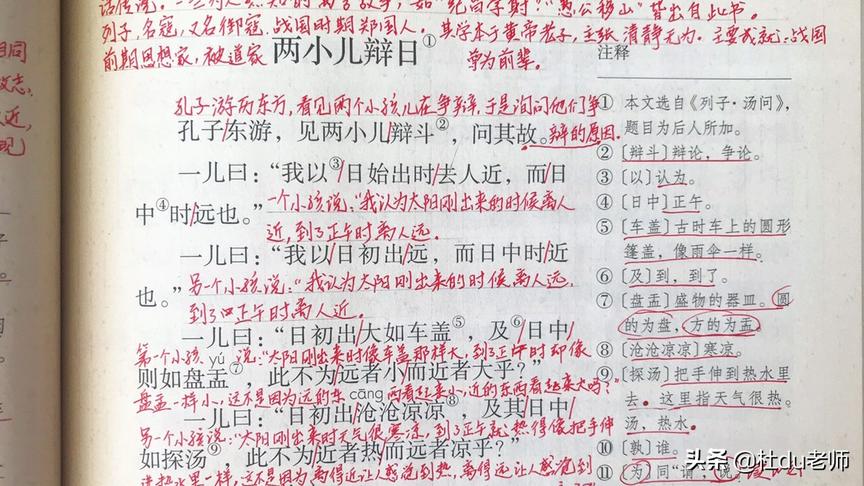 话传说。
如“纪昌学射”“愚公移山”皆出自此书。
列子,名寇,又名御寇,战国时期郑国人。其学本于黄帝老子,主张清静无为。主要成就:战国
前期思想家,被道家尊为前辈。
两小儿辩日①
注释
孔子游历东方,看见两个小孩儿在争辩,于是询问他们争
辩的原因。
孔子/东游,见两小儿/辩斗②,问其故。
一儿曰:“我以③/日始出时/去人近,而/日
中④/时/远也。”
一个小孩说:“我认为太阳刚出来的时候离人
近,到了正午时离人远。
一儿曰:“我以/日初出/远,而日中时/近
也。”
另一个小孩说:“我认为太阳刚出来的时候离人远,
到了正午时离人近。
一儿曰:“日初出/大如车盖⑤,及⑥/日中/
第一个小孩 yú 说:“太阳刚出来时像车盖那样大,到了正中时却像
则如盘盂⑦,此不为/远者小/而近者大乎?”
盘盂一样小,这不是因为远的东西看起来小,近的东西看起来大吗?”
cāng
一儿曰:“日初出/沧沧凉凉⑧,及其/日中/
另一个小孩说:“太阳刚出来时天气很寒凉,到了正午就热得像把手伸
如探汤⑨,此不为/近者热/而远者凉乎?”
进热水里一样,这不是因为离得近让人感觉到热,离得远让人感觉到
① 本文选自《列子·汤问》,
题目为后人所加。
② 〔辩斗〕辩论,争论。
③ 〔以〕认为。
④ 〔日中〕正午。
⑤ 〔车盖〕古时车上的圆形
篷盖,像雨伞一样。
⑥ 〔及〕到,到了。
⑦ 〔盘盂〕盛物的器皿。圆
的为盘,方的为盂。
⑧ 〔沧沧凉凉〕寒凉。
⑨ 〔探汤〕把手伸到热水里
去。这里指天气很热。
汤,热水。
⑩ 〔孰〕谁。
⑪ 〔为〕同“谓”,说。
头条 @杜du老师